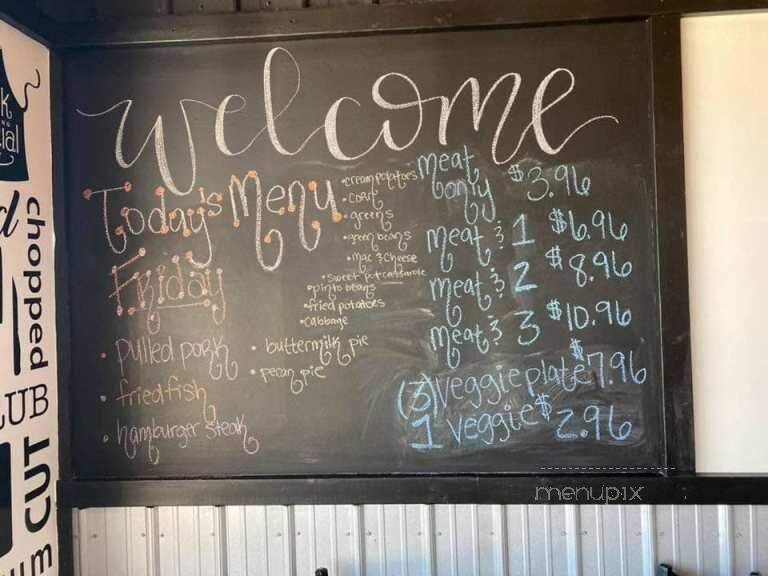 welcome
Today's Menu
Friday
• pulled pork
• fried fish
• hamburger steak
• cream potatoes
• corn
• greens
• green beans
• mac & cheese
• sweet pot casserole
• pinto beans
• fried potatoes
• cabbage
• buttermilk pie
• pecan pie
meat only $3.96
meat & 1 $6.96
meat & 2 $8.96
meat & 3 $10.96
(3) veggie plate $7.96
1 veggie $2.96
chopped
CUT
menupix